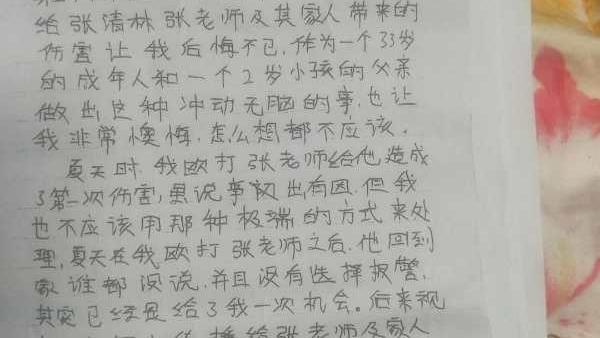 给张清林张老师及其家人带来的
伤害让我后悔不已,作为一个33岁
的成年人和一个2岁小孩的父亲
做出这种冲动无脑的事,也让
我非常懊悔,怎么想都不应该。
夏天时,我殴打张老师给他造成
了第一次伤害,虽说事初出有因,但我
也不应该用那种极端的方式来处
理,夏天在我殴打张老师之后,他回到
家谁都没说,并且没有选择报警,
其实已经是给了我一次机会。后来视
播给张老师及家人